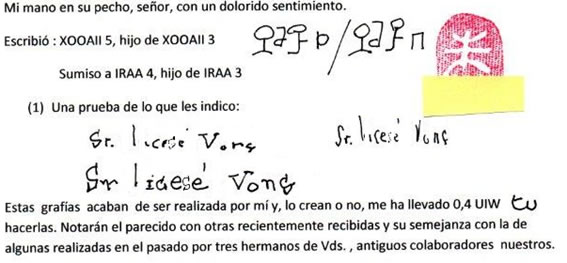 Mi mano en su pecho, señor, con un dolorido sentimiento.
Escribió : XOOAII 5, hijo de XOOAII 3
Sumiso a IRAA 4, hijo de IRAA 3
(1) Una prueba de lo que les indico:
Sr. licesé Vong Sr. licesé Vong
Sr licesé Vong
Estas grafías acaban de ser realizada por mí y, lo crean o no, me ha llevado 0,4 UIW
hacerlas. Notarán el parecido con otras recientemente recibidas y su semejanza con la de
algunas realizadas en el pasado por tres hermanos de Vds. , antiguos colaboradores nuestros.